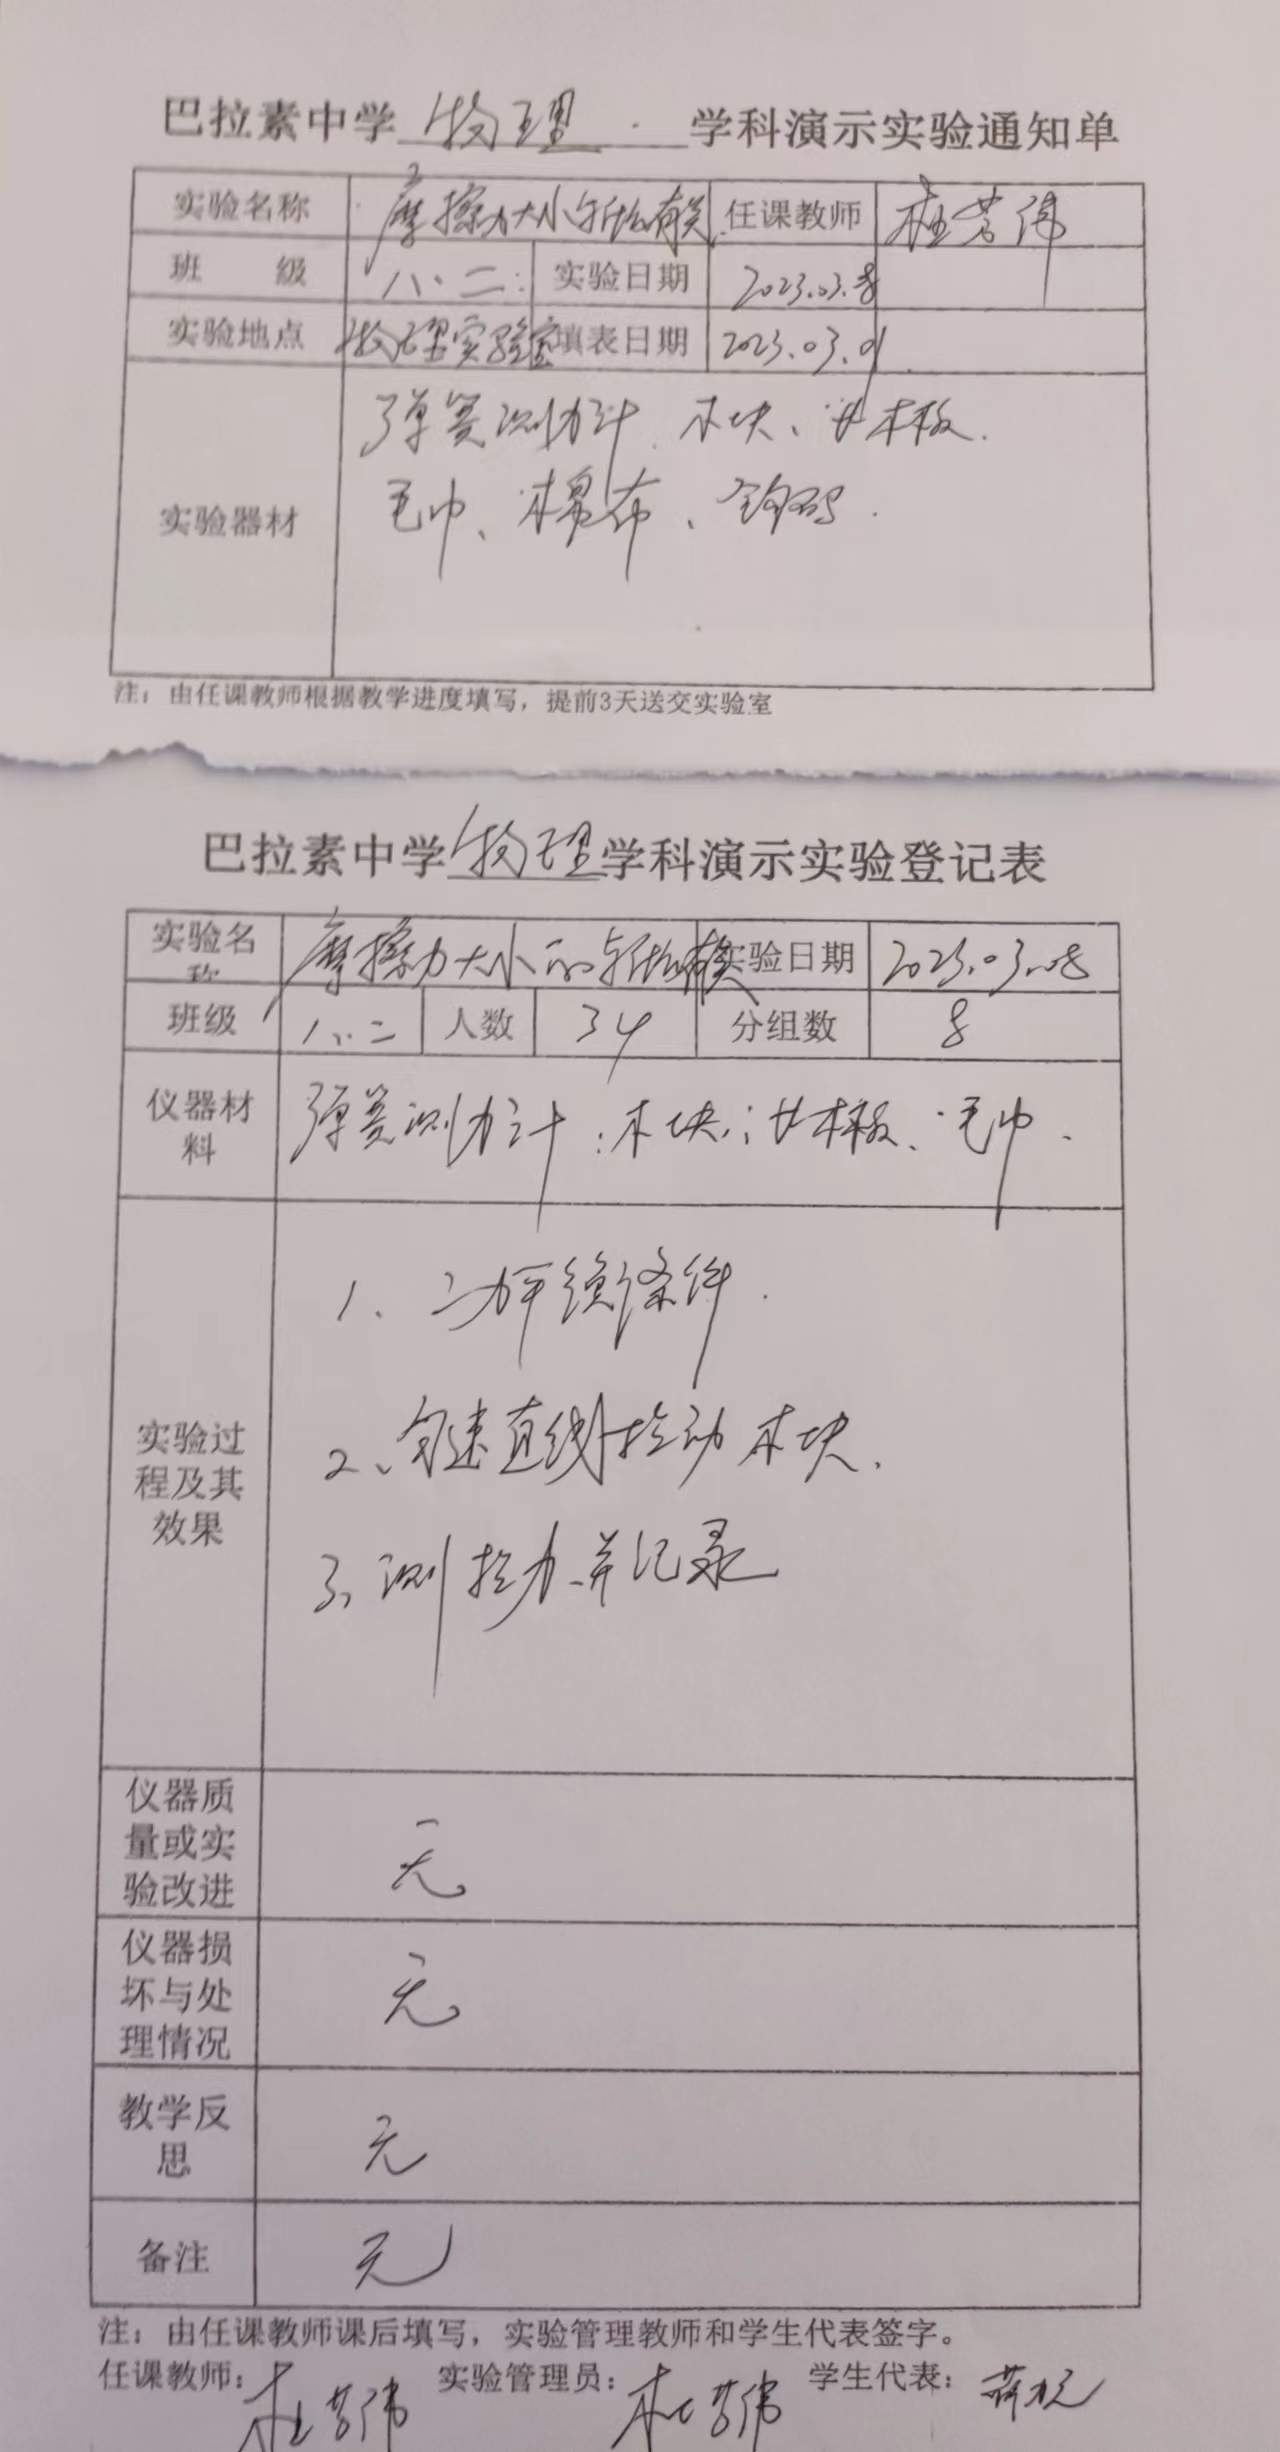 巴拉素中学 物理 学科演示实验通知单
实验名称 摩擦力大小与什么有关 任课教师 杜芳伟
班 级 八、二 实验日期 2023.03.8
实验地点 物理实验室 填表日期 2023.03.01
弹簧测力计、木块、长木板、
实验器材 毛巾、棉布、钩码.
注：由任课教师根据教学进度填写，提前3天送交实验室
巴拉素中学 物理 学科演示实验登记表
实验名称 摩擦力大小与什么有关 实验日期 2023.03.08
班级 八、二 人数 34 分组数 8
仪器材料 弹簧测力计、木块、长木板、毛巾、
实验过程及其效果
1、二力平衡条件.
2、匀速直线拉动木块、
3、测拉力并记录
仪器质量或实验改进 无
仪器损坏与处理情况 无
教学反思 无
备注 无
注：由任课教师课后填写，实验管理教师和学生代表签字。
任课教师：杜芳伟 实验管理员：杜芳伟 学生代表：